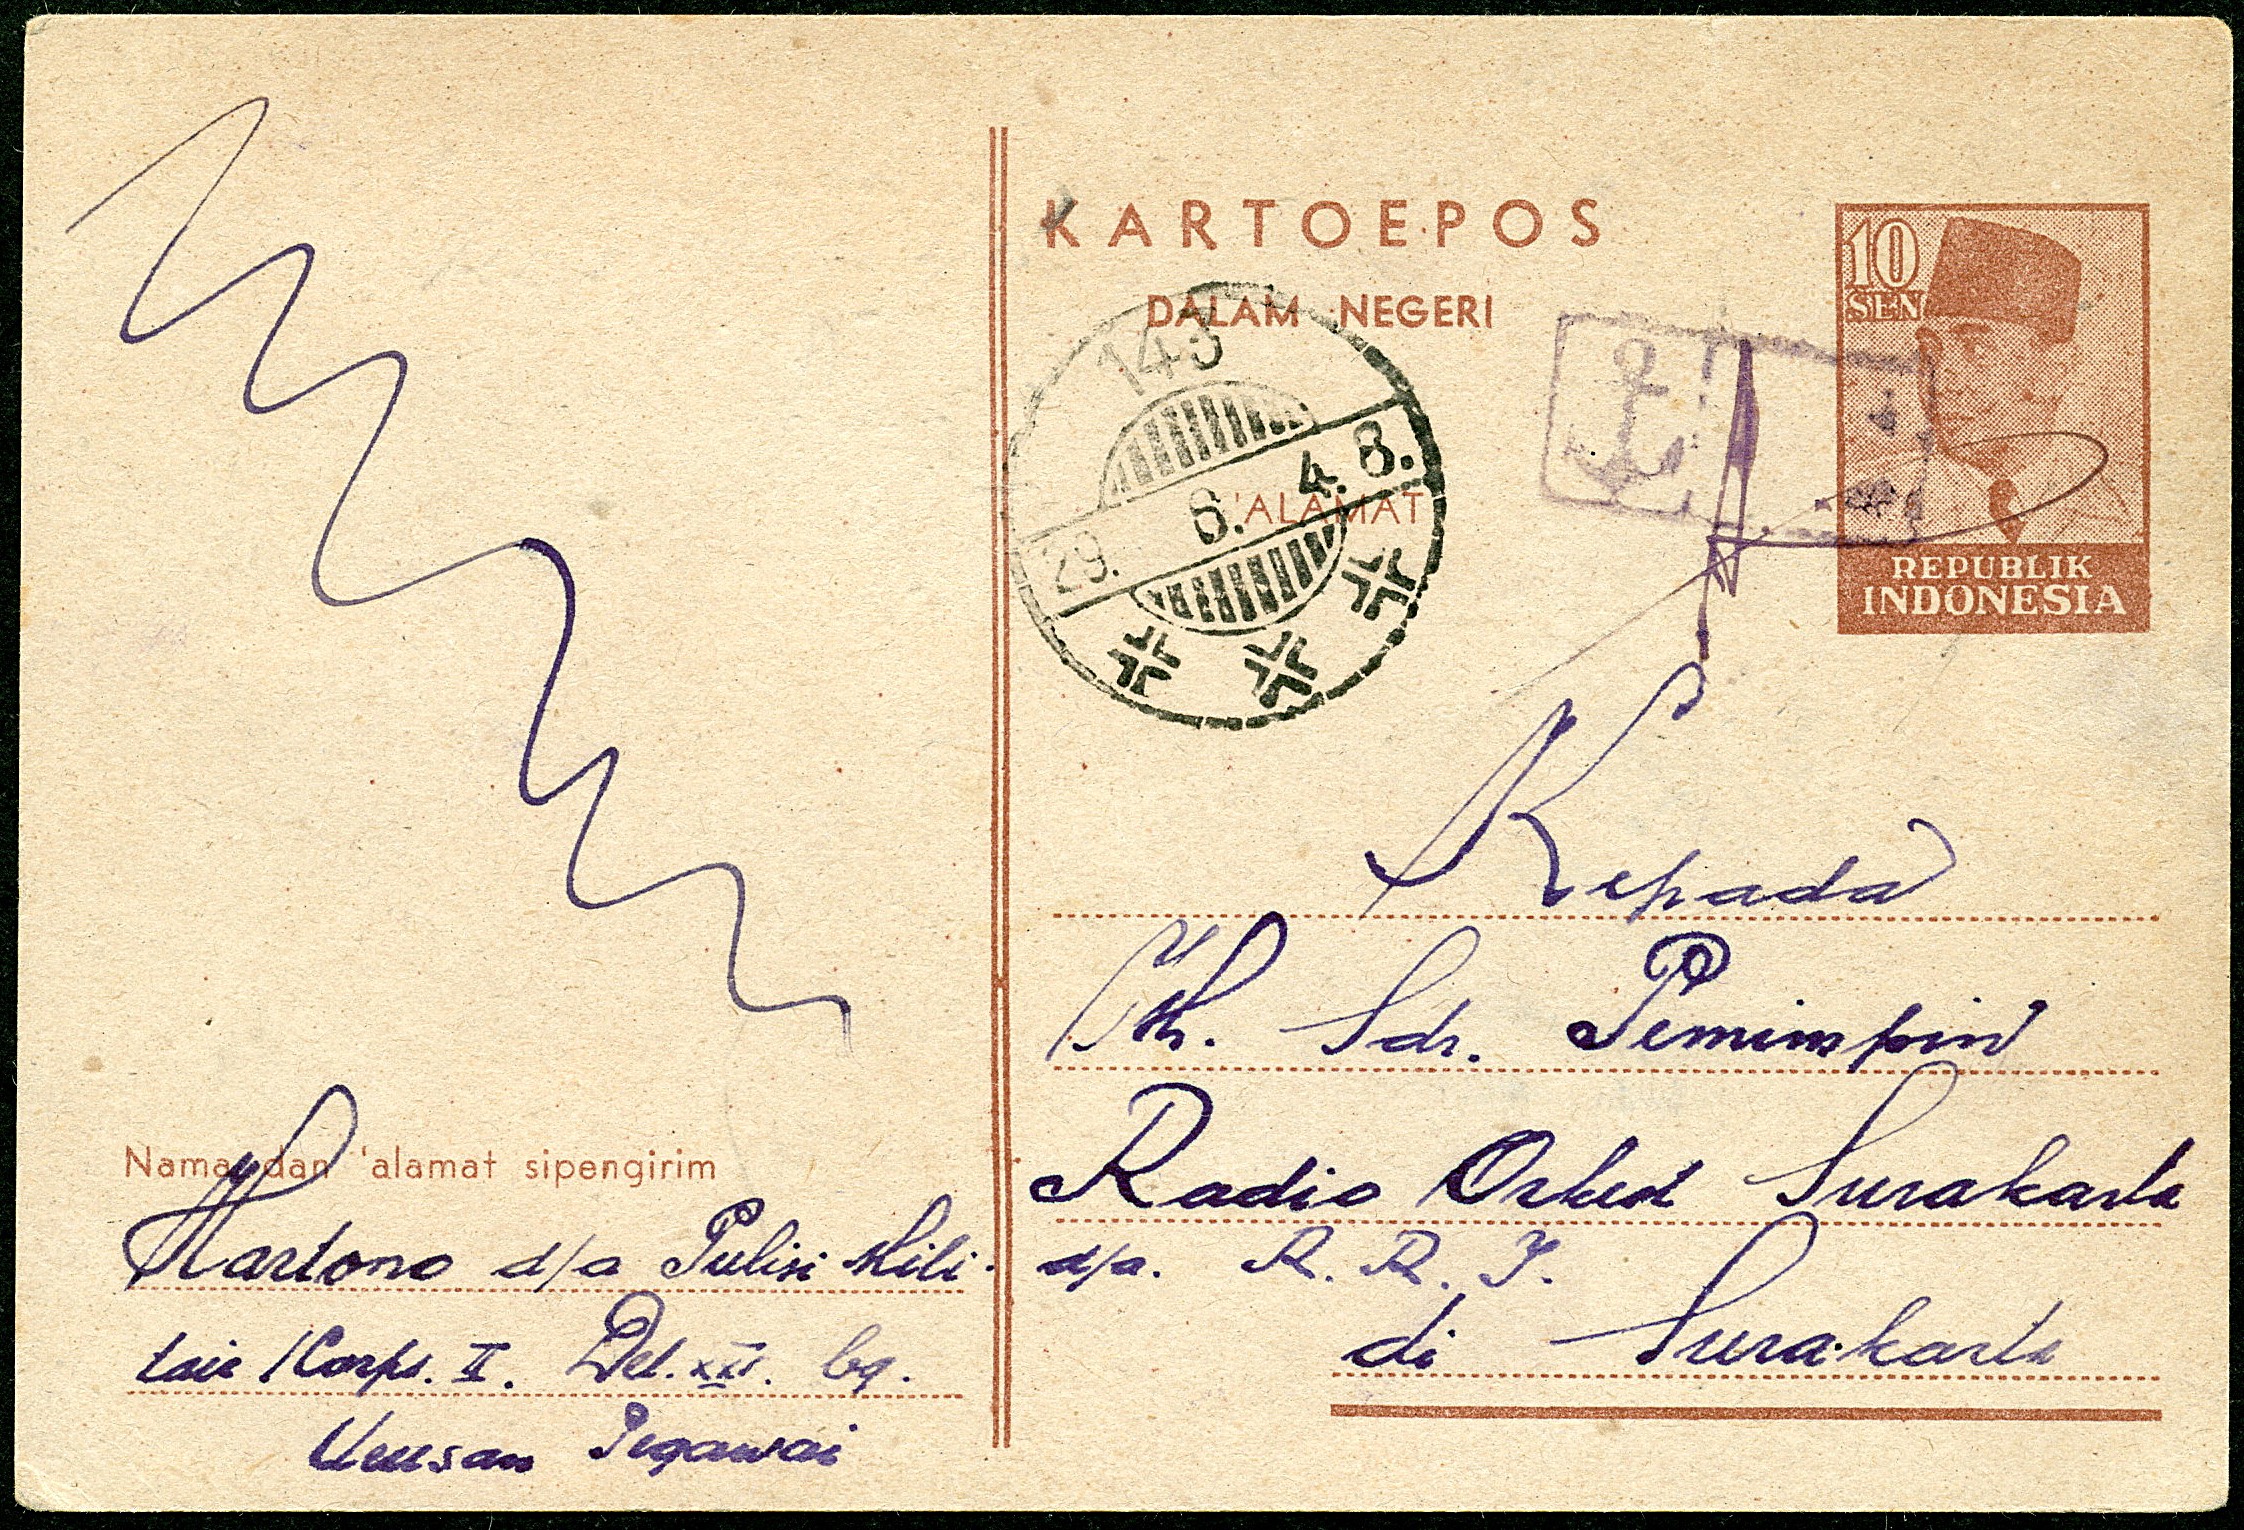 KARTOEPOS
DALAM NEGERI
10
SEN
REPUBLIK
INDONESIA
143
29. 8. 4. 8.
'ALAMAT
Kepada
Yth. Sdr. Pemimpin
Radio Orkest Surakarta
d/a. R. R. I.
di Surakarta
Nama dan 'alamat sipengirim
Hartono d/a Pulisi Mili-
tair / Corps. II. Det. bg.
Urusan Pegawai